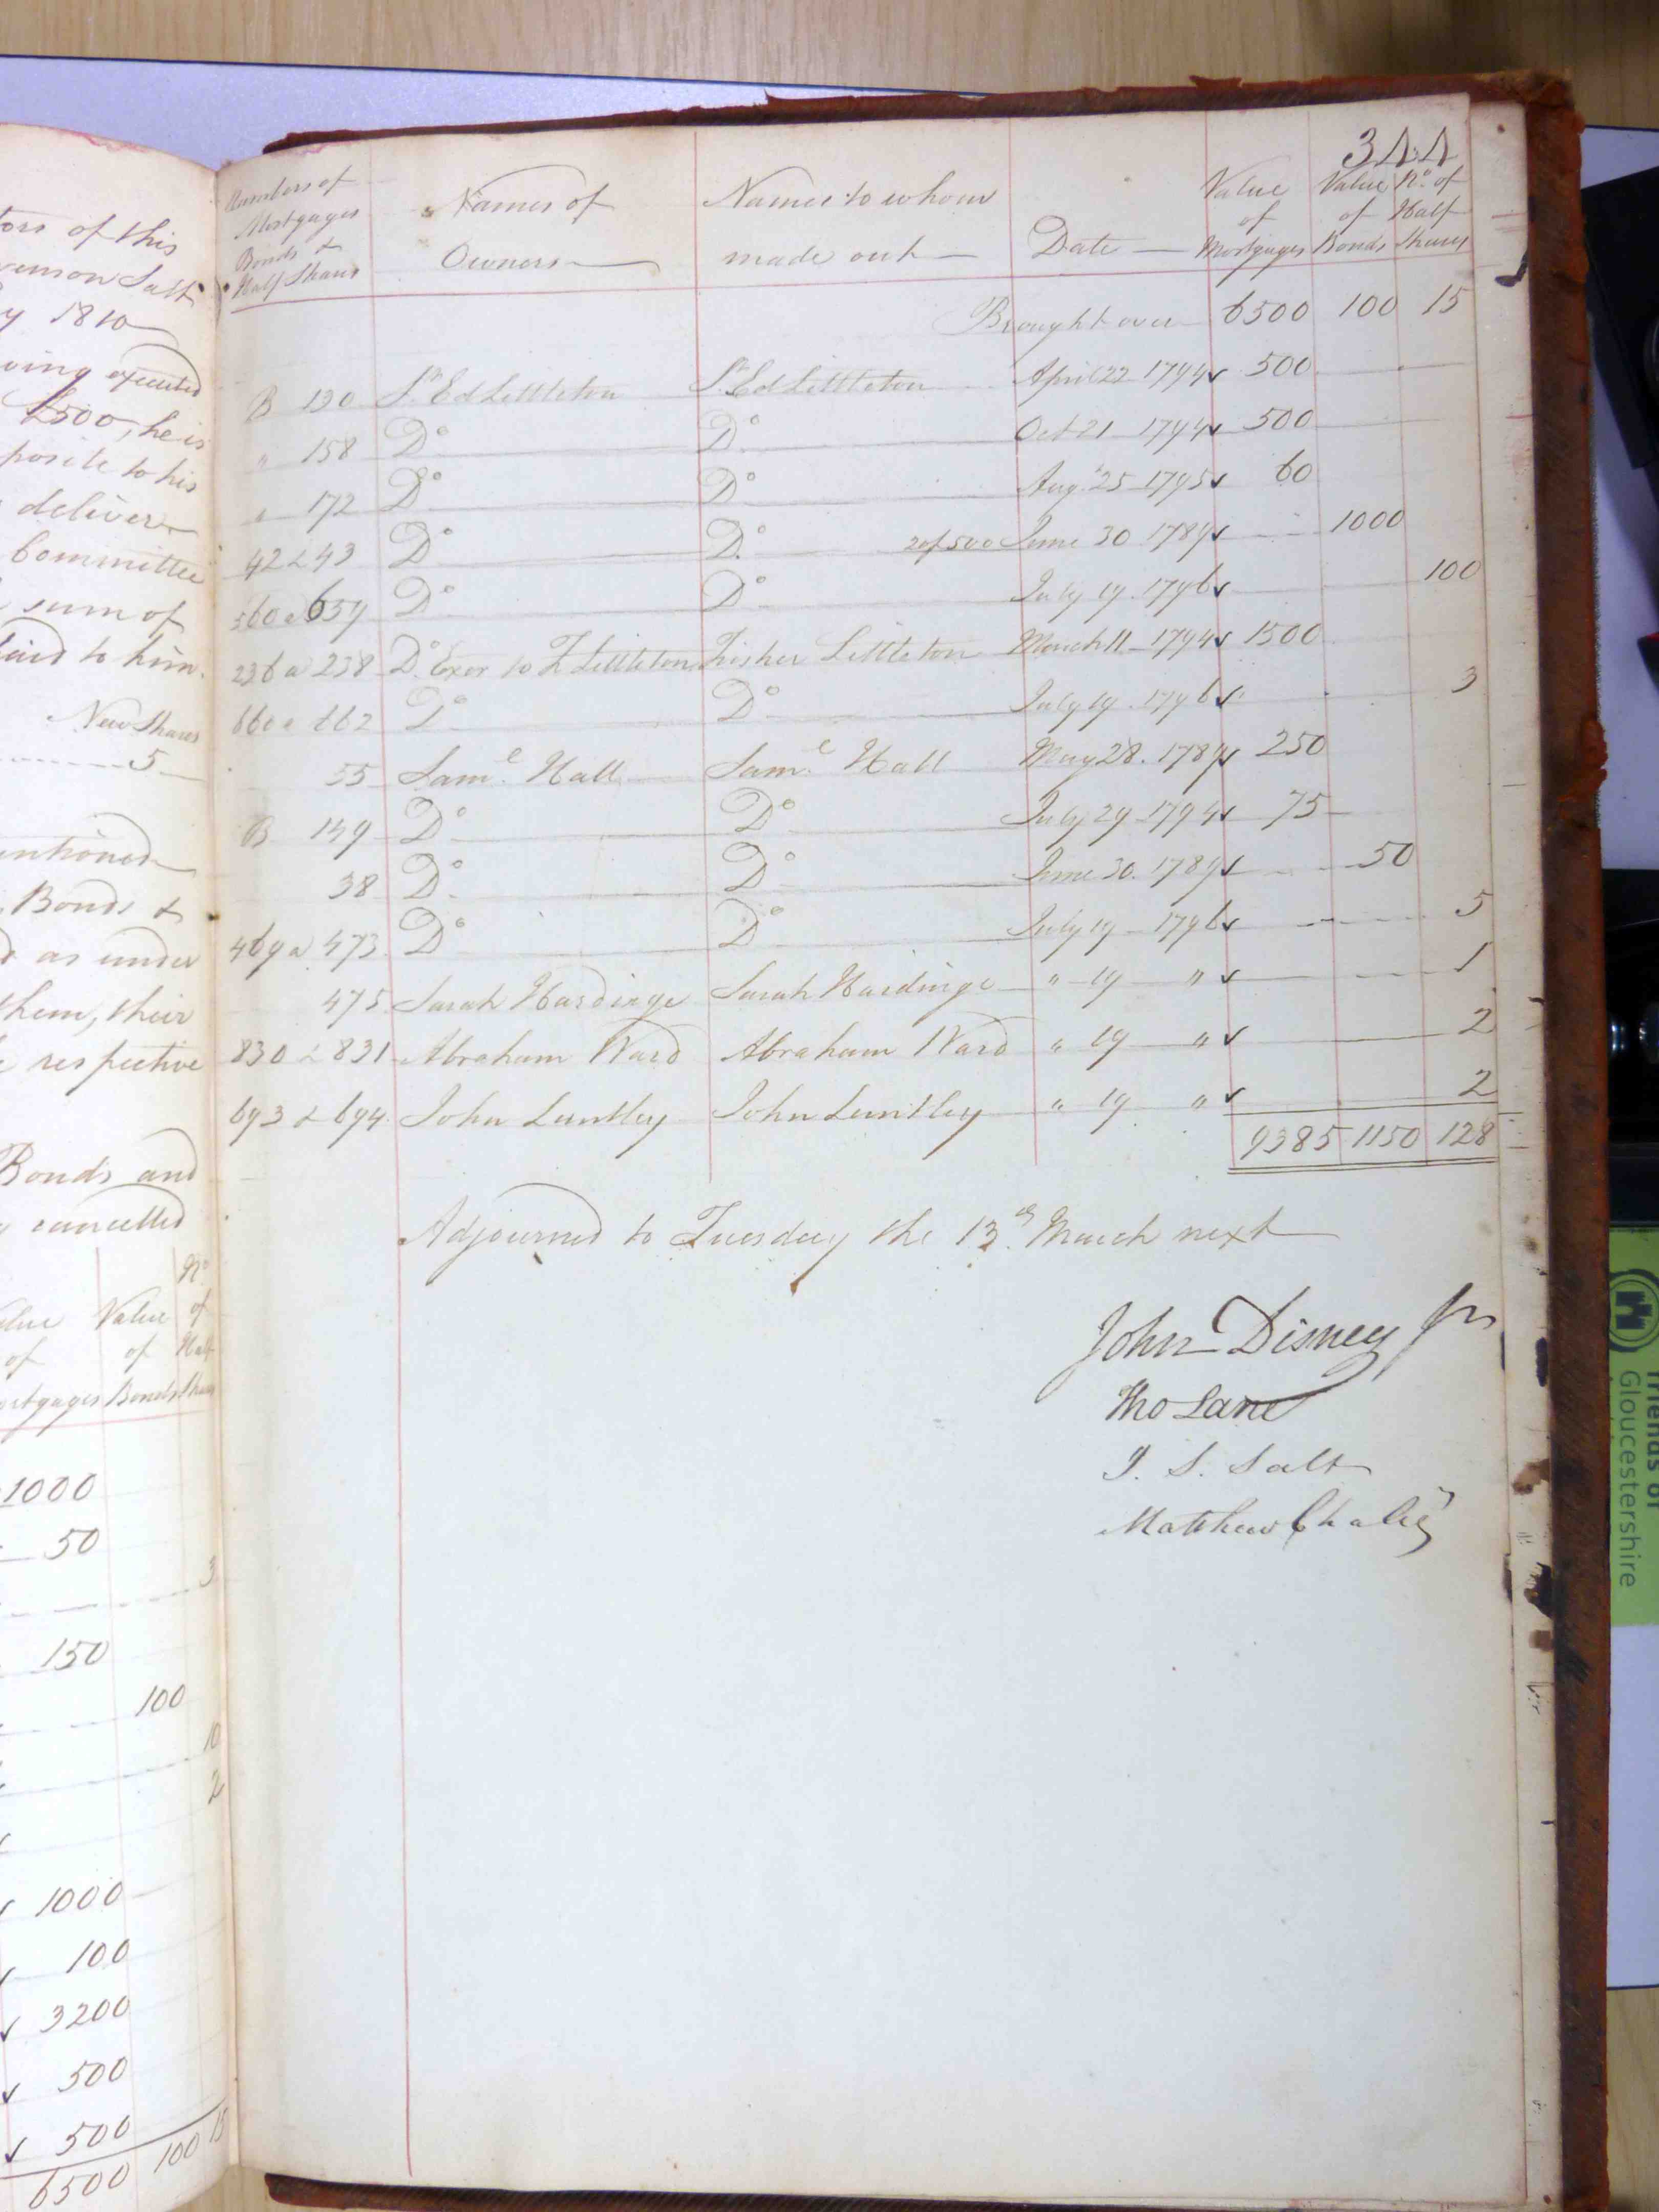 tors of this
venson Salt
y 1810
ving executed
£500, he is
posite to his
deliver
Committee
sum of
paid to him.
New Shares
5
entioned
Bonds &
d as under
them, their
e respective
Bonds and
y cancelled
No
alue Value of
of of Half
ortgages Bonds Shares
1000
50
3
150
100
10
2
1000
100
3200
500
500
6500 100 15
344
Numbers of Mortgages Bonds & Half Shares
Names of Owners
Names to whom made out
Date
Value of Mortgages
Value of Bonds
No. of Half Shares
Brought over 6500 100 15
B 130 Sr. Ed Littleton Sr. Ed Littleton April 22 1794 ✓ 500
" 158 Do Do. Oct 21 1794 ✓ 500
" 172 Do Do Aug. 25 1795 ✓ 60
42 & 43 Do Do. 2 of 500 June 30 1789 ✓ 1000
560 a 659 Do Do July 19 1796 ✓ 100
236 a 238 Do. Exor to F Littleton Fisher Littleton March 11 1794 ✓ 1500
660 a 662 Do Do July 19 1796 ✓ 3
55 Saml. Hall Saml. Hall May 28. 1789 ✓ 250
B 149 Do Do July 29 1794 ✓ 75
38 Do Do June 30. 1789 ✓ 50
469 a 473 Do Do July 19 1796 ✓ 5
475 Sarah Hardinge Sarah Hardinge " 19 " ✓ 1
830 & 831 Abraham Ward Abraham Ward " 19 " ✓ 2
693 & 694 John Luntley John Luntley " 19 " ✓ 2
9385 1150 128
Adjourned to Tuesday the 13th. March next
John Disney Jn
Tho Lane
J. S. Salt
Matthew
Friends of
Gloucestershire